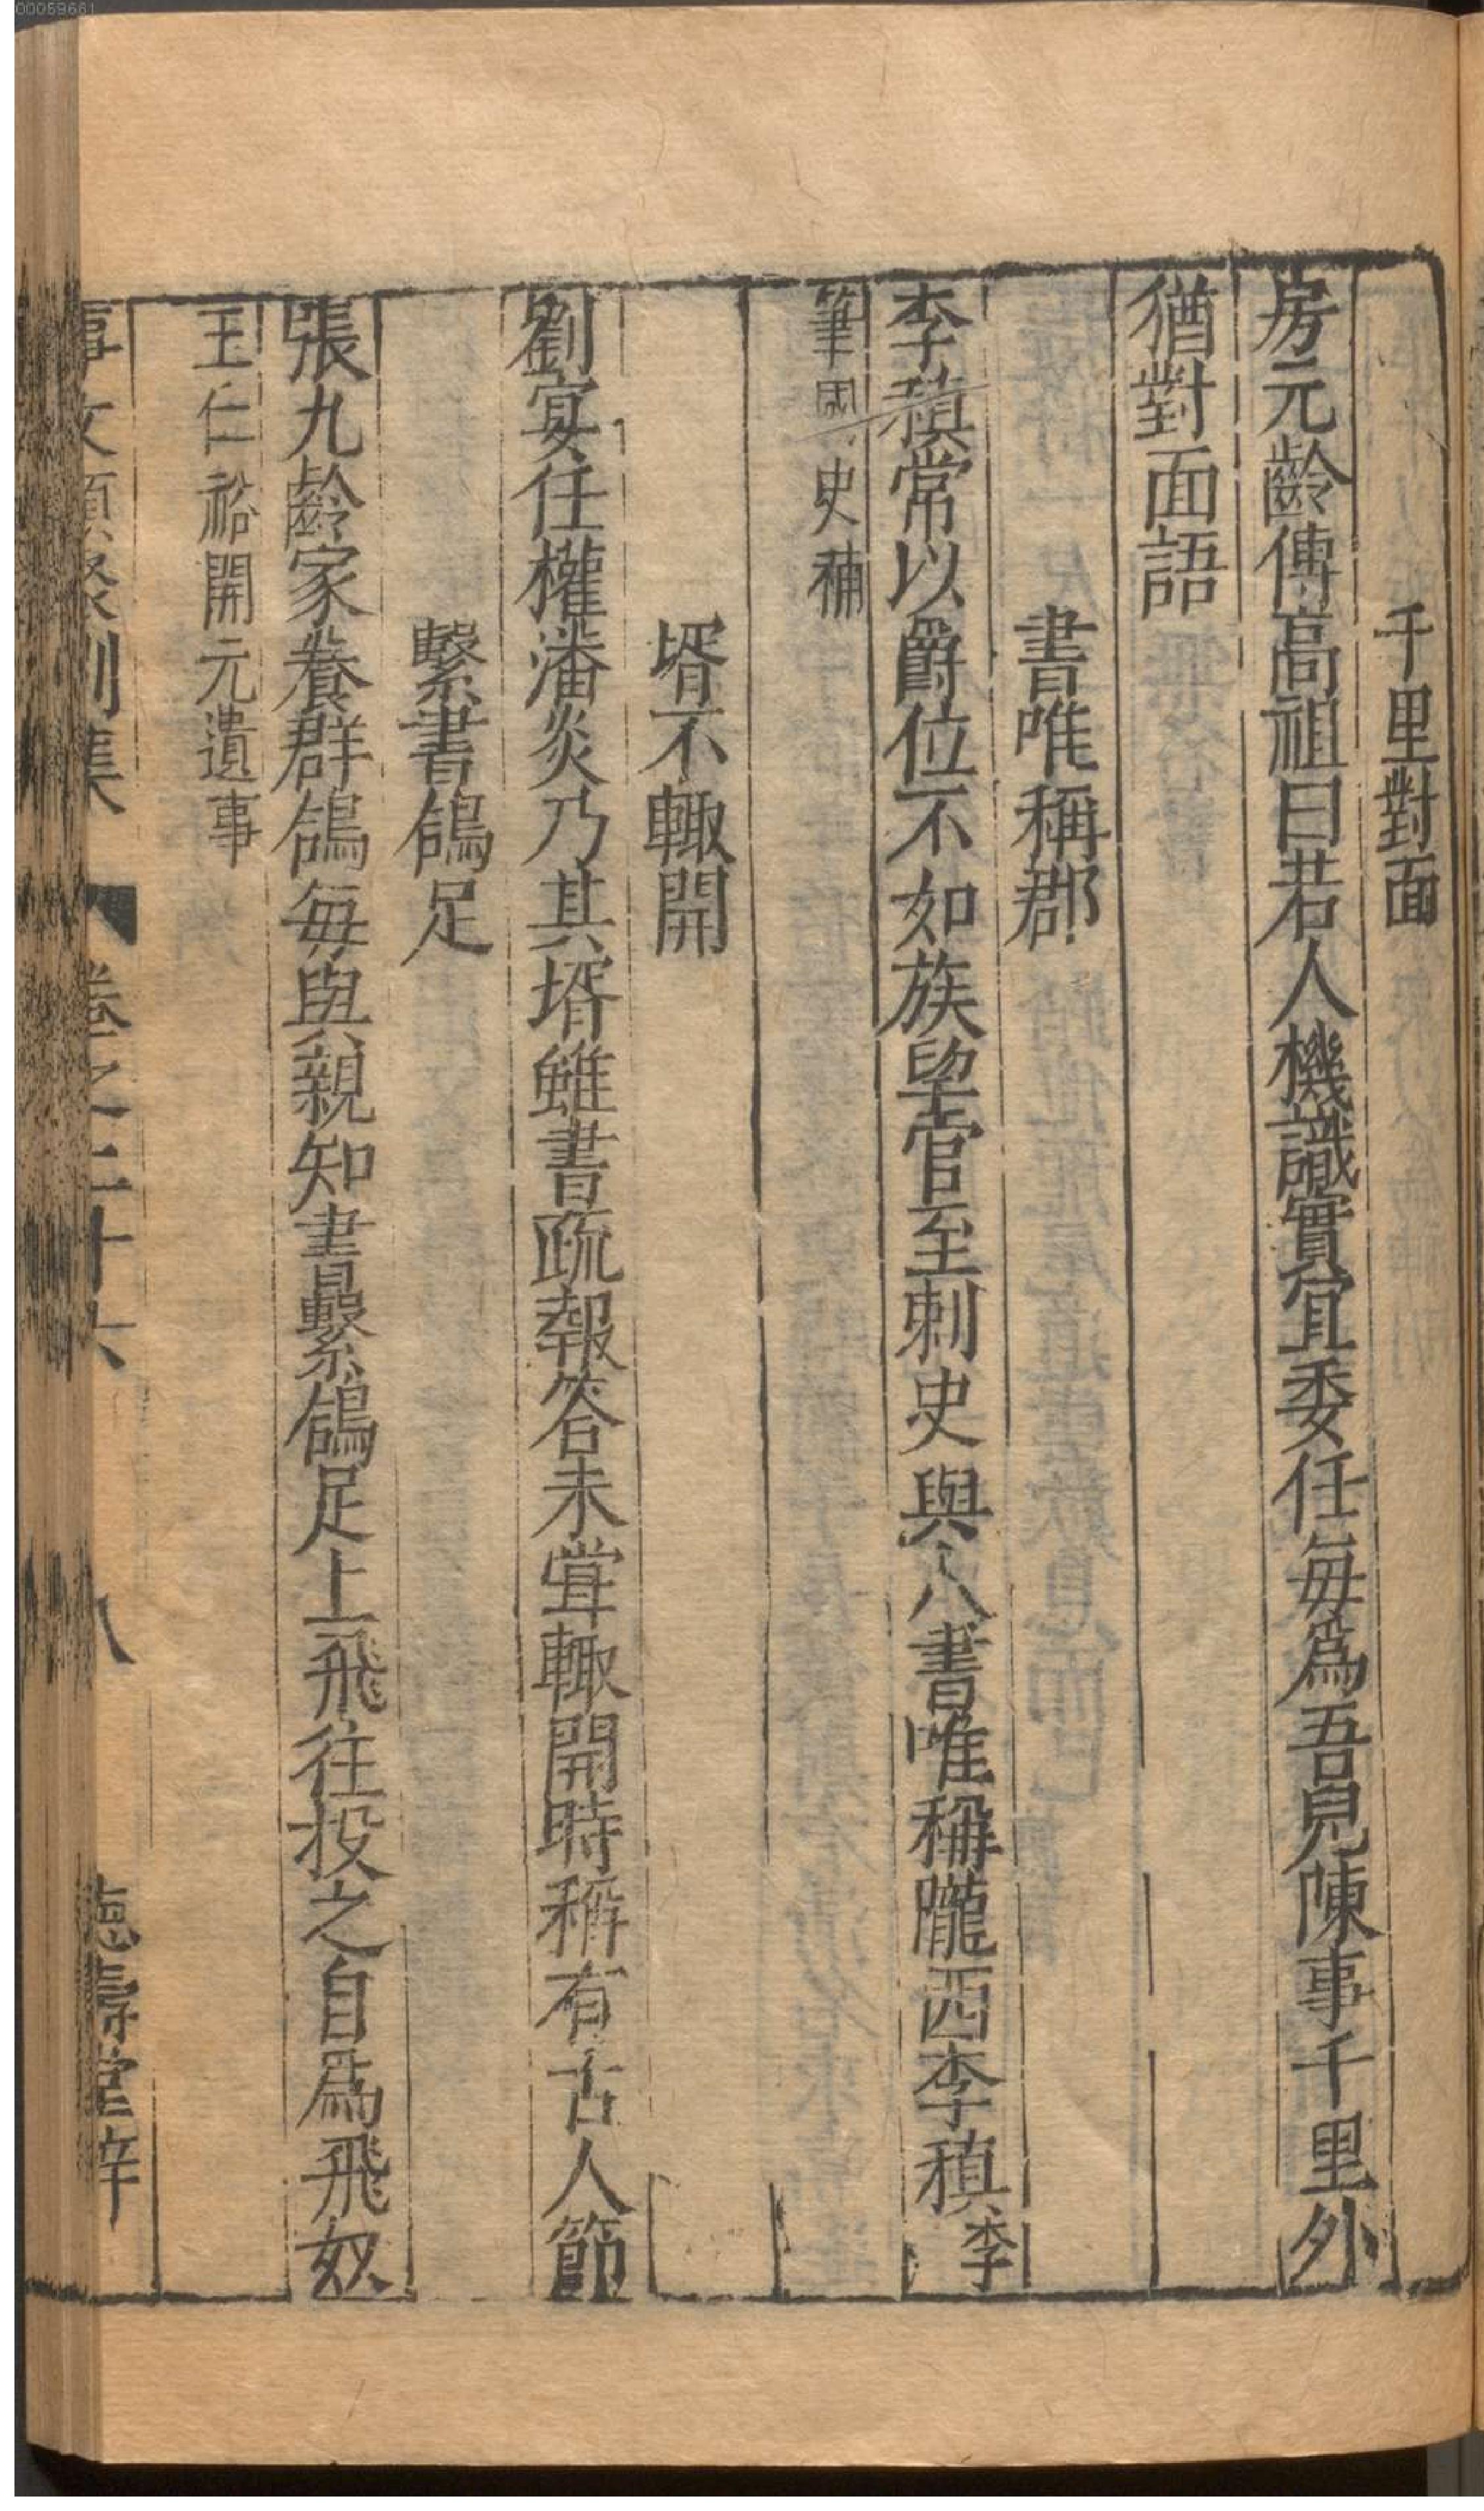 00059661
千里對面
房元齡傳高祖曰若人機識實宜委任每爲吾兒陳事千里外
猶對面語
書唯稱郡
李稹常以爵位不如族望官至刺史與人書唯稱隴西李稹李
筆國史補
壻不輙開
劉宴任權潘炎乃其壻雖書疏報答未甞輙開時稱有古人節
繫書鴿足
張九齡家養群鴿每與親知書繫鴿足上飛往投之自爲飛奴
王仁裕開元遺事
事文類聚別集 卷之二十六 八 德壽堂梓